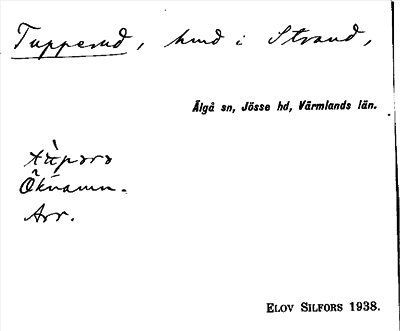 Tupperud, hmd i Strand,
Älgå sn, Jösse hd, Värmlands län.
Öknamn.
Arr.
ELOV SILFORS 1938.